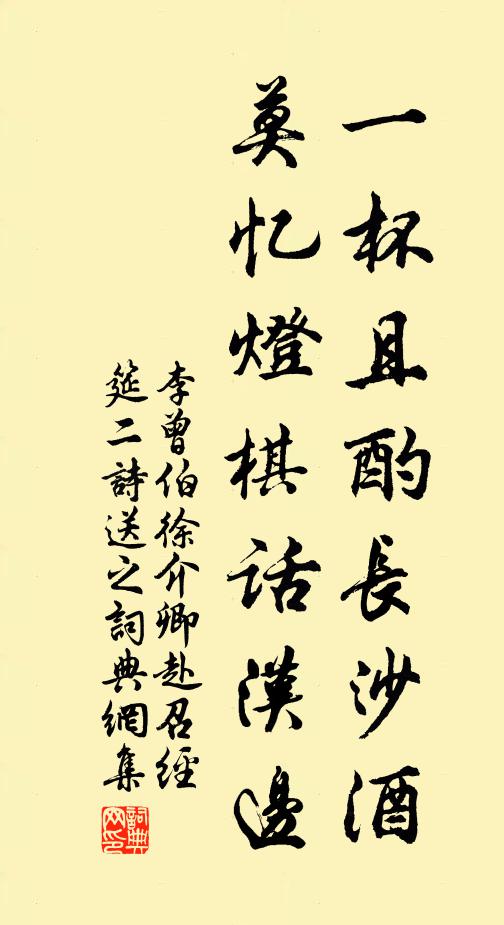 一杯且酌長沙酒
莫忆燈棋話漢邊
李曾伯徐介卿赴召經
筵二詩送之詞典網集
詞典
网印